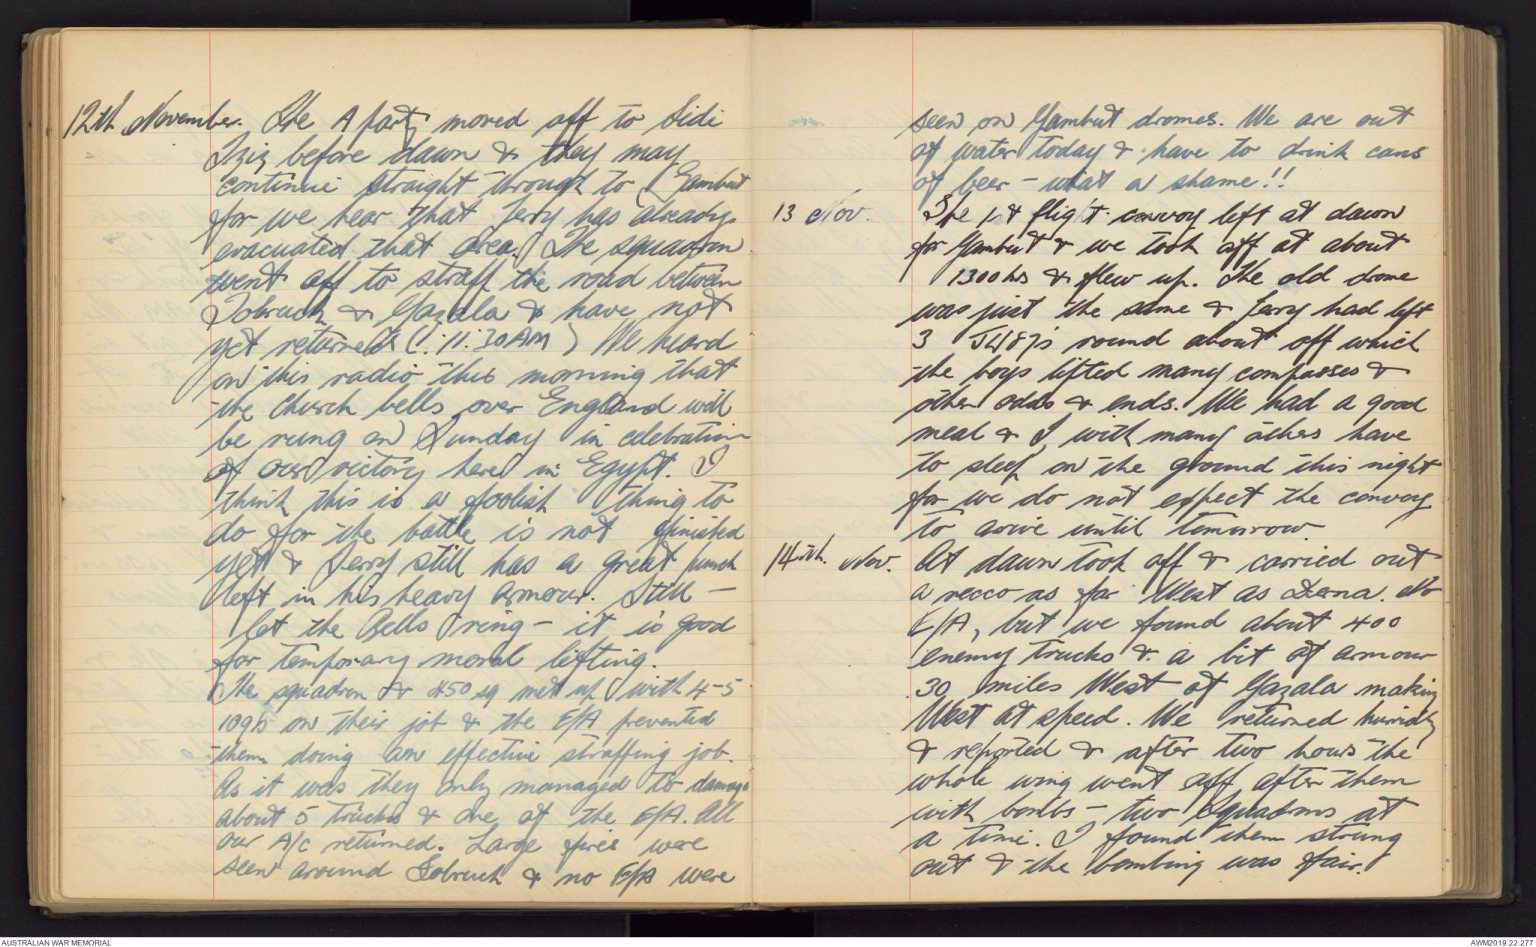 12th November. The A party moved off to Sidi
Iziz before dawn & they may
continue straight through to Gambut
for we hear that Jerry has already
evacuated that area. The squadron
went off to straff the road between
Tobruch & Gazala & have not
yet returned (11.30AM) We heard
on this radio this morning that
the Church bells over England will
be rung on Sunday in celebration
of our victory here in Egypt. I
think this is a foolish thing to
do for the battle is not finished
yet & Jerry still has a great punch
left in his heavy armour. Still -
let the Bells ring - it is good
for temporary moral lifting.
The squadron & 450 sq met up with 4-5
109s on their job & the E/A prevented
them doing an effective straffing job.
As it was they only managed to damage
about 5 trucks & one of the E/A. All
our A/c returned. Large fires were
seen around Tobruch & no E/A were
seen on Gambut dromes. We are out
of water today & have to drink cans
of beer - what a shame!!
13 Nov. The flight convoy left at dawn
for Gambut & we took off at about
1300hrs & flew up. The old drome
was just the same & Jerry had left
3 round about off which
the boys lifted many compasses &
other odds & ends. We had a good
meal & I, with many others have
to sleep on the ground this night
for we do not expect the convoy
to arive until tomorrow.
14th. Nov. At dawn took off & carried out
a recco as far West as Derna. No
E/A, but we found about 400
enemy trucks & a bit of armour
30 miles West of Gazala making
West at speed. We returned hurridly
& reported & after two hours the
whole wing went off after them
with bombs - two Squadrons at
a time. I found them strung
out & the bombing was fair.
AUSTRALIAN WAR MEMORIAL
AWM2019.22.277